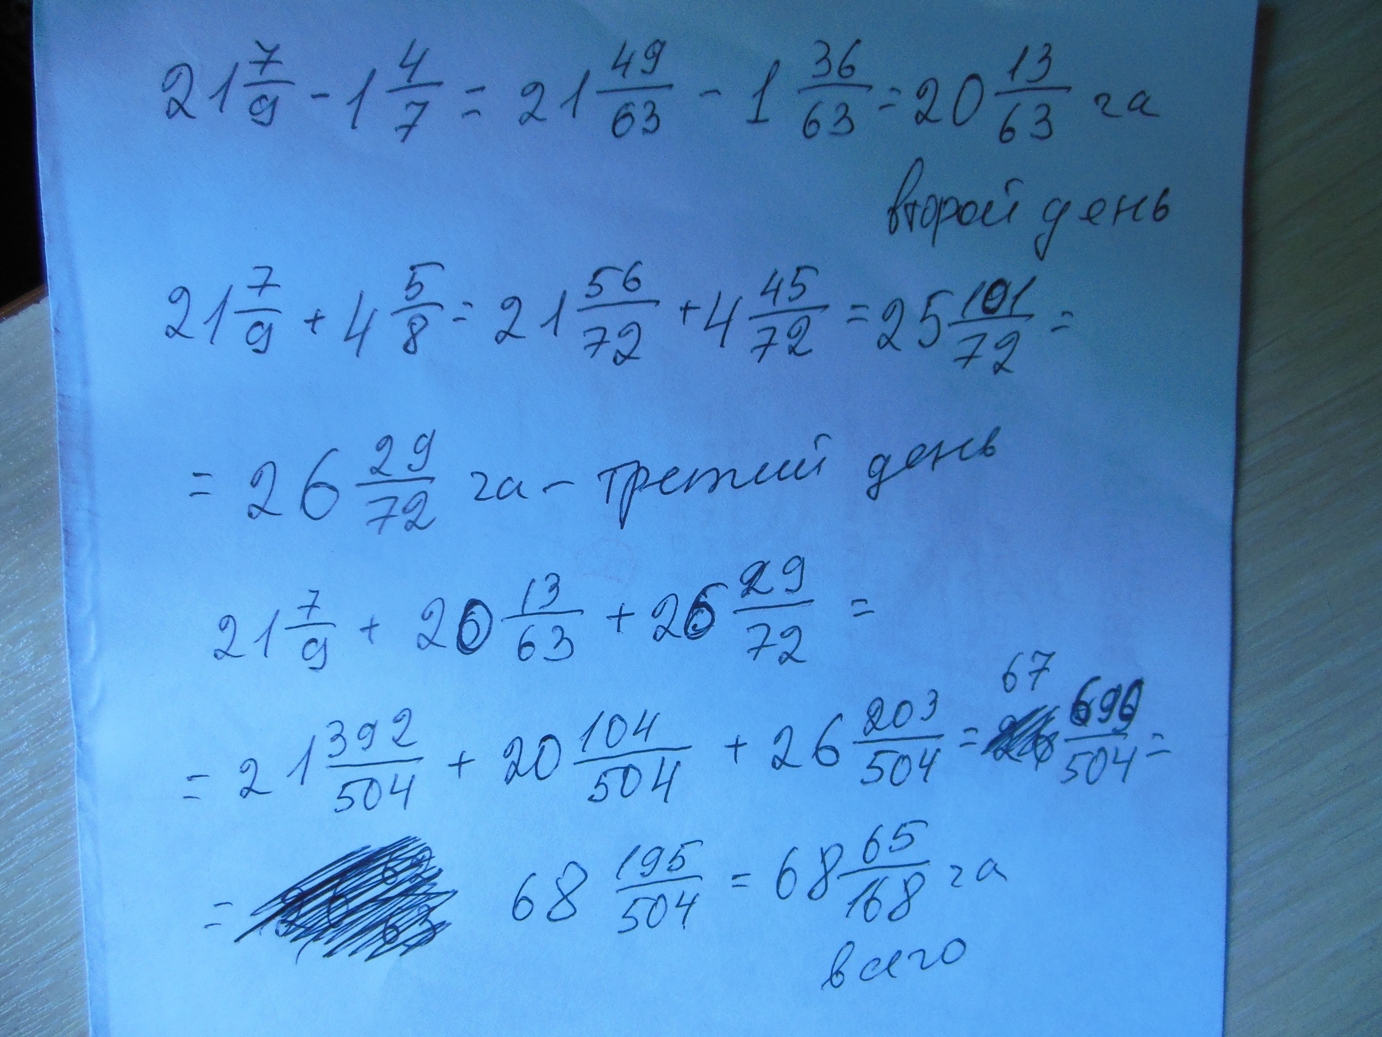 21 7/9 - 1 4/7 = 21 49/63 - 1 36/63 = 20 13/63 га
второй день
21 7/9 + 4 5/8 = 21 56/72 + 4 45/72 = 25 101/72 =
= 26 29/72 га - третий день
21 7/9 + 20 13/63 + 26 29/72 =
= 21 392/504 + 20 104/504 + 26 203/504 = 67 699/504 =
= 68 195/504 = 68 65/168 га
всего